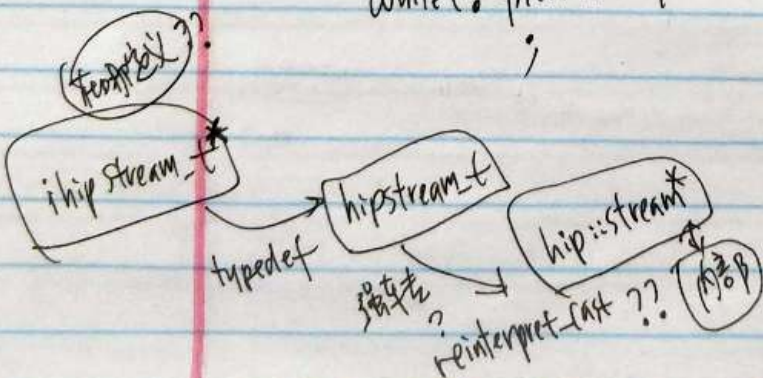 while(!
;
在哪定义??
ihipStream_t*
typedef
hipstream_t
强转
?
reinterpret_cast ??
hip::stream*
内部